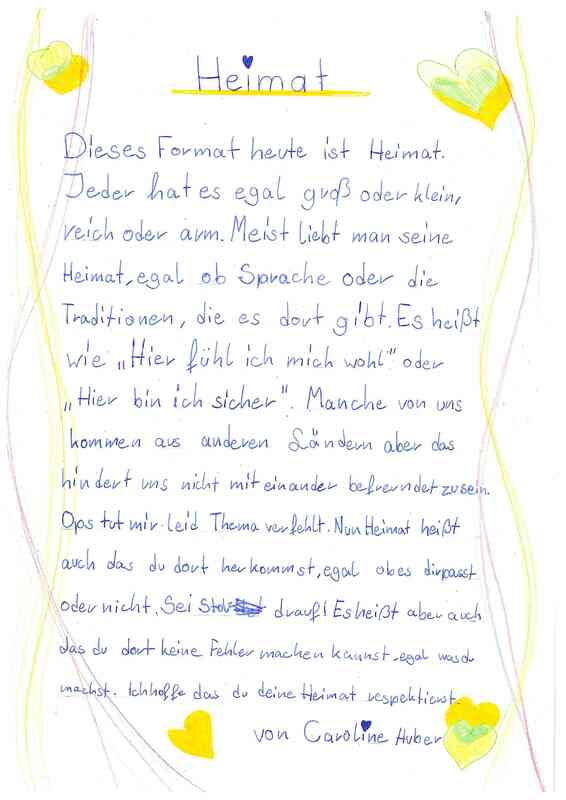 Heimat
Dieses Format heute ist Heimat.
Jeder hat es egal groß oder klein,
reich oder arm. Meist liebt man seine
Heimat, egal ob Sprache oder die
Traditionen, die es dort gibt. Es heißt
wie „Hier fühl ich mich wohl" oder
„Hier bin ich sicher". Manche von uns
kommen aus anderen Ländern aber das
hindert uns nicht miteinander befreundet zu sein.
Ops tut mir leid Thema verfehlt. Nun Heimat heißt
auch das du dort herkommst, egal ob es dir passt
oder nicht. Sei drauf! Es heißt aber auch
das du dort keine Fehler machen kannst egal was du
machst. Ich hoffe das du deine Heimat respektierst.
von Caroline Huber